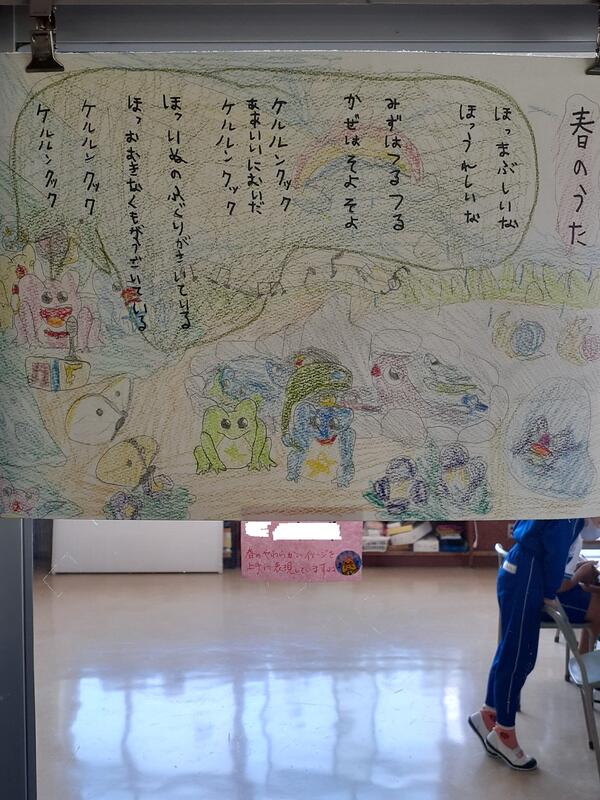 春のうた
ほっまぶしいな
ほっうれしいな
みずはつるつる
かぜはそよそよ
ケルルンクック
ああいいにおいだ
ケルルンクック
ほっいぬのふぐりがさいている
ほっおおきなくもがうごいている
ケルルンクック
ケルルンクック
春のやわらかいイメージを
上手に表現していますね